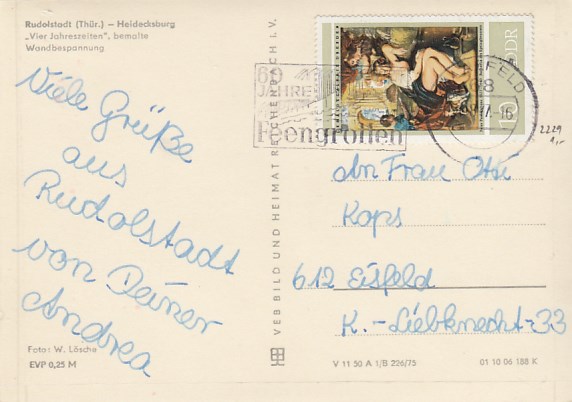 Rudolstadt (Thür.) – Heidecksburg
„Vier Jahreszeiten", bemalte
Wandbespannung
Viele Grüße
aus
Rudolstadt
von Deiner
Andrea
Foto: W. Lösche
EVP 0,25 M
VEB BILD UND HEIMAT REICHENBACH i. V.
JAHRE
DDR
2229
1,-
An Frau
Kops
612 Eisfeld
K.-Liebknecht-33
V 11 50 A 1/B 226/75
01 10 06 188 K